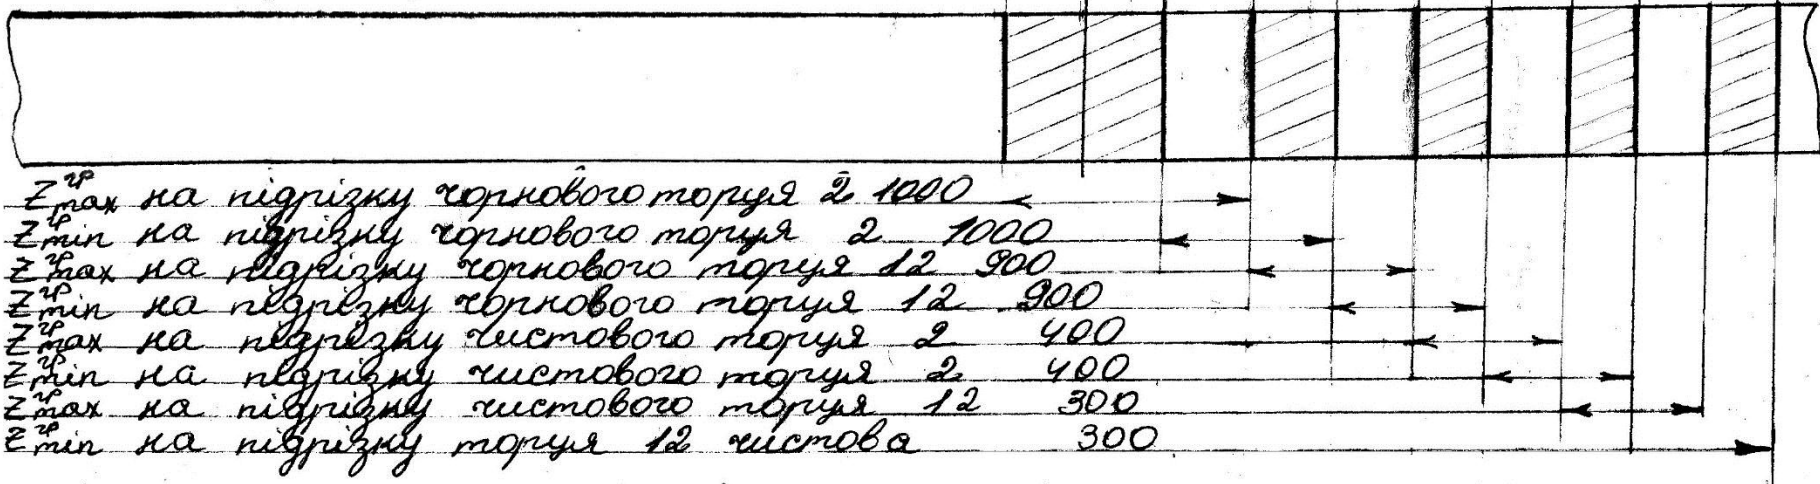 Z^гр_max на підрізку чорнового торця 2 1000
Z^гр_min на підрізку чорнового торця 2 1000
Z^гр_max на підрізку чорнового торця 12 900
Z^гр_min на підрізку чорнового торця 12 900
Z^гр_max на підрізку чистового торця 2 400
Z^гр_min на підрізку чистового торця 2 400
Z^гр_max на підрізку чистового торця 12 300
Z^гр_min на підрізку торця 12 чистова 300